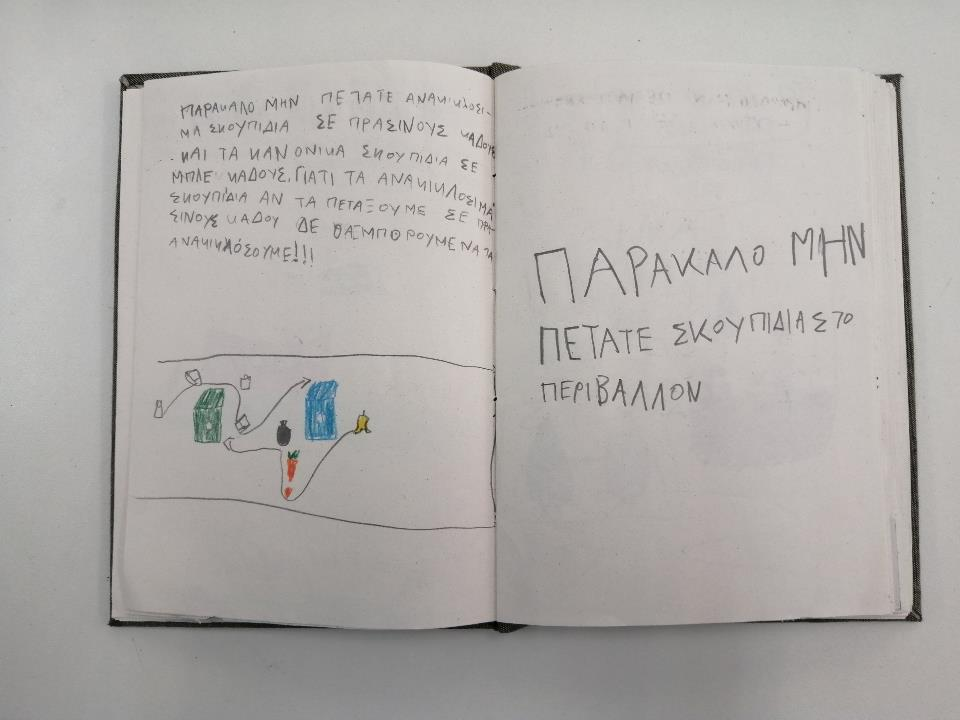 ΠΑΡΑΚΑΛΟ ΜΗΝ ΠΕΤΑΤΕ ΑΝΑΚΙΚΛΟΣΙ-
ΜΑ ΣΚΟΥΠΙΔΙΑ ΣΕ ΠΡΑΣΙΝΟΥΣ ΚΑΔΟΥΣ
ΚΑΙ ΤΑ ΚΑΝΟΝΙΚΑ ΣΚΟΥΠΙΔΙΑ ΣΕ
ΜΠΛΕ ΚΑΔΟΥΣ, ΓΙΑΤΙ ΤΑ ΑΝΑΚΙΚΛΟΣΙΜΑ
ΣΚΟΥΠΙΔΙΑ ΑΝ ΤΑ ΠΕΤΑΞΟΥΜΕ ΣΕ ΠΡΑ-
ΣΙΝΟΥΣ ΚΑΔΟΥ ΔΕ ΘΑ ΜΠΟΡΟΥΜΕ ΝΑ ΤΑ
ΑΝΑΚΙΚΛΟΣΟΥΜΕ!!!
ΠΑΡΑΚΑΛΟ ΜΗΝ
ΠΕΤΑΤΕ ΣΚΟΥΠΙΔΙΑ ΣΤΟ
ΠΕΡΙΒΑΛΛΟΝ